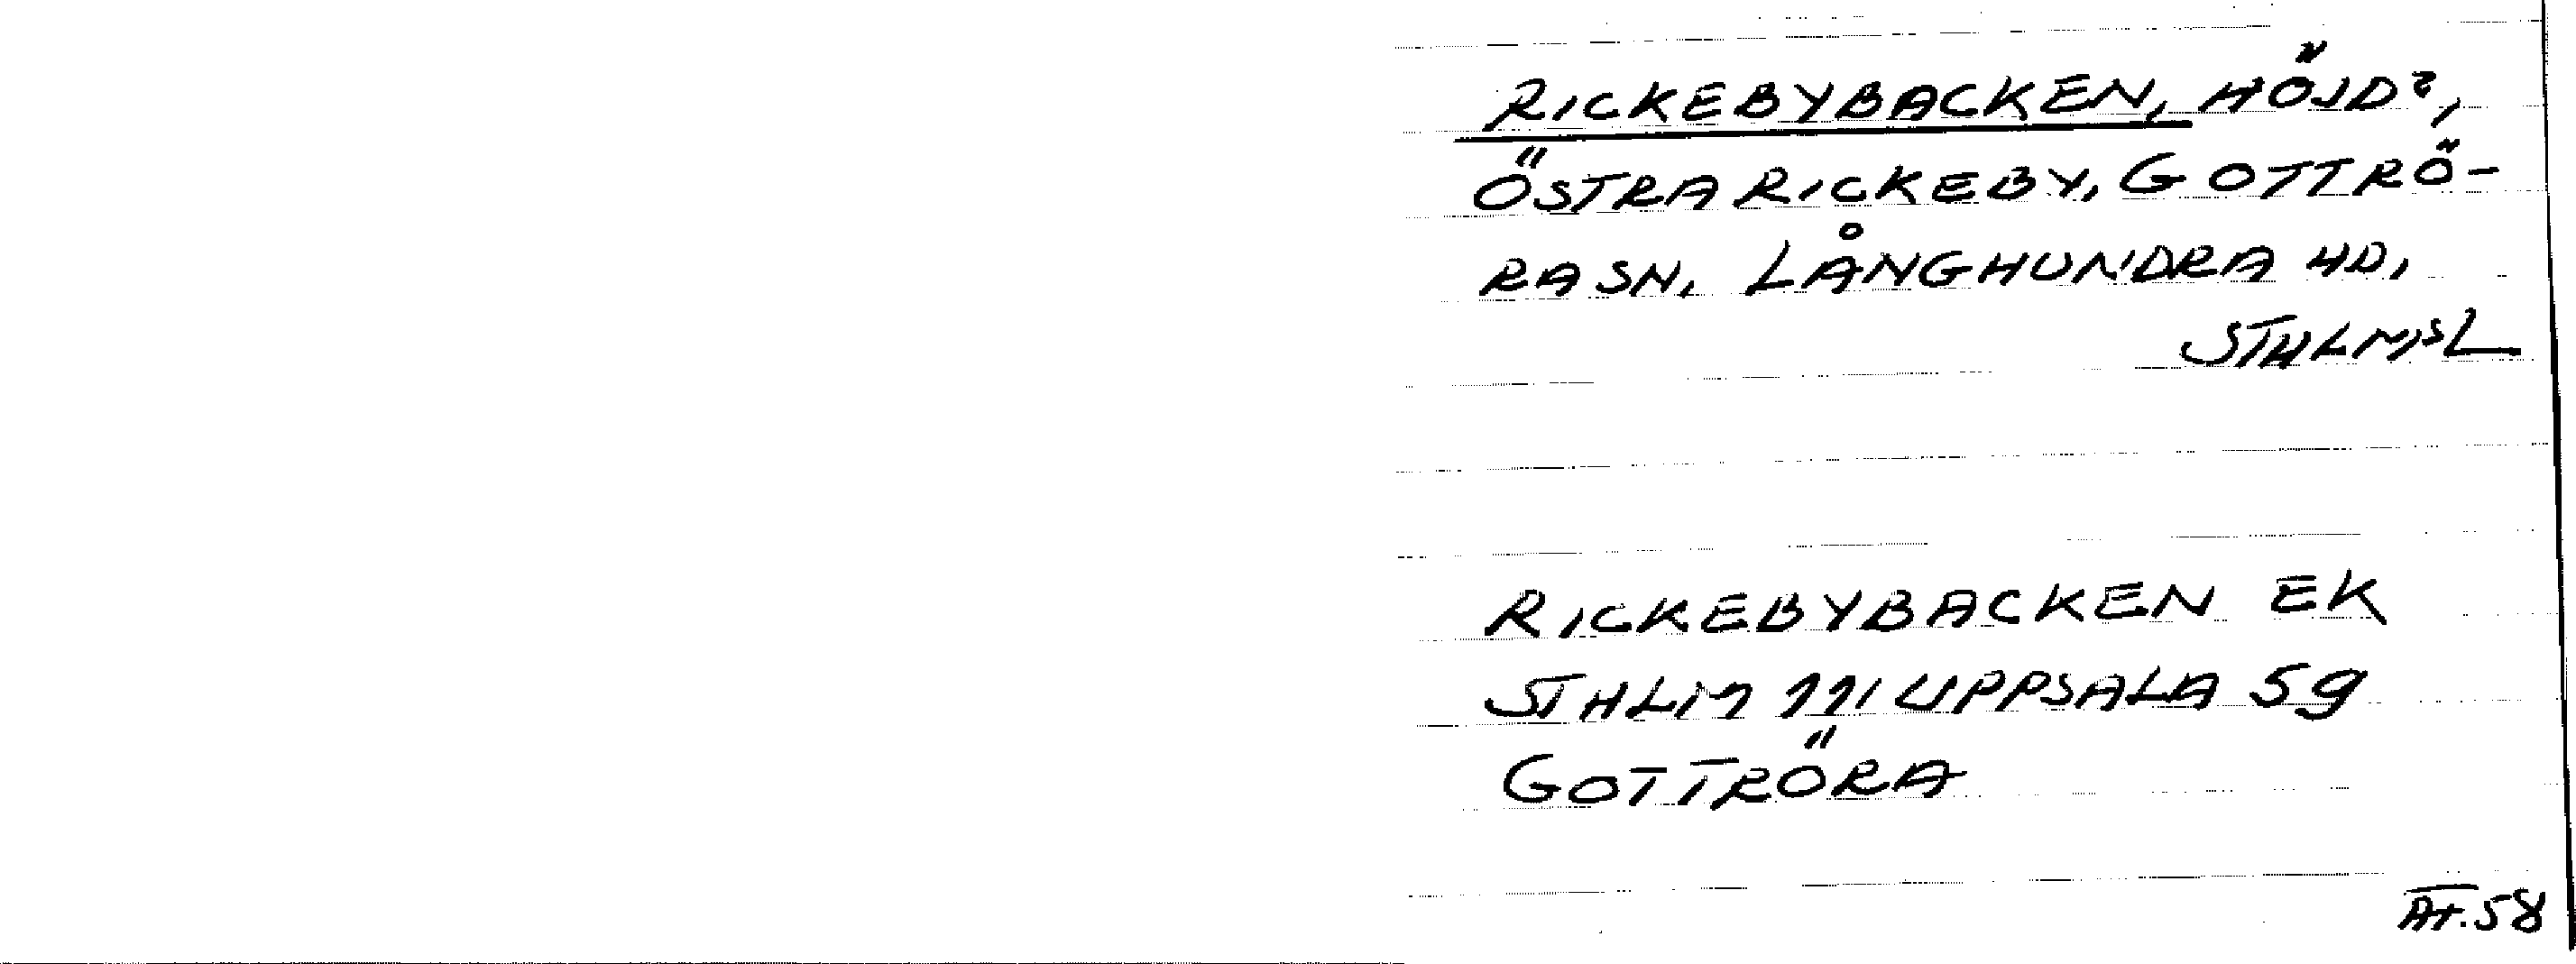 RICKEBYBACKEN, HÖJD?,
ÖSTRA RICKEBY, GOTTRÖ-
RA SN, LÅNGHUNDRA HD,
STHLMSL
RICKEBYBACKEN EK
STHLM 111 UPPSALA 59
GOTTRÖRA
AT.58